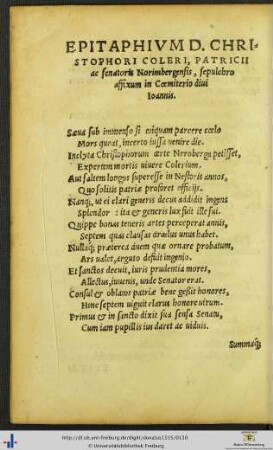 EPITAPHIVM D. CHRI-
STOPHORI COLERI, PATRICII
ac senatoris Norimbergensis, sepulchro
affixum in Cœmiterio diui
Ioannis.
Sæua sub immenso si cuiquam parcere cœlo
Mors queat, incerto iussa venire die.
Inclyta Christophorum arte Noroberga petisset,
Expertem mortis viuere Colerium.
Aut saltem longos superesse in Nestoris annos,
Quo solitis patriæ prosiret officijs.
Nanq; ut ei clari generis decus addidit ingens
Splendor: ita & generis lux fuit ille sui.
Quippe bonas teneris artes perceperat annis,
Septem quas clausas ara unus habet.
Nullaq; præterea duem quæ ornare probatum,
Ars valet, arguto defuit ingenio.
Et sanctos decuit, iuris prudentia mores,
Allectus, iuuenis, unde Senator erat.
Consul & oblatos patriæ bene gessit honores,
Hinc septem viguit clarus honore virum.
Primus & in sancto dixit sua sensa Senatu,
Cum iam pupillis ius daret ac viduis.
Summaq;
http://dl.ub.uni-freiburg.de/diglit/donatus1515/0116
© Universitätsbibliothek Freiburg